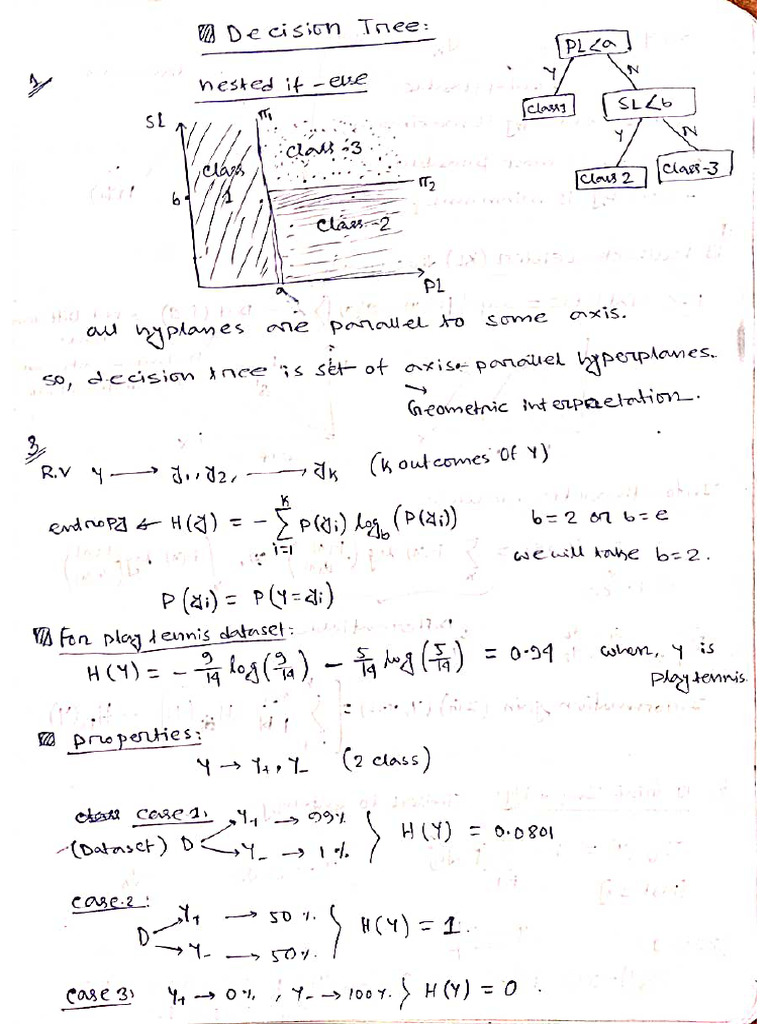 Decision Tree:
1.
nested if-else
PL<a
Y N
class1 SL<b
Y N
class 2 class-3
SL
π1
class-3
class 1
b
π2
class-2
a
PL
all hyplanes are parallel to some axis.
so, decision tree is set of axis-parallel hyperplanes.
Geometric interpretation.
3.
R.V Y → y1, y2, → yk (K outcomes of Y)
entropy ← H(y) = - Σ_{i=1}^{K} P(yi) log_b (P(yi)) b=2 or b=e
we will take b=2.
P(yi) = P(Y=yi)
For play tennis dataset:
H(Y) = - 9/14 log(9/14) - 5/14 log(5/14) = 0.94 when, Y is
play tennis
properties:
Y → Y+, Y- (2 class)
case 1, Y+ → 99%
(Dataset) D Y- → 1% } H(Y) = 0.0801
case 2:
D Y+ → 50%
Y- → 50% } H(Y) = 1.
case 3, Y+ → 0%, Y- → 100% } H(Y) = 0.